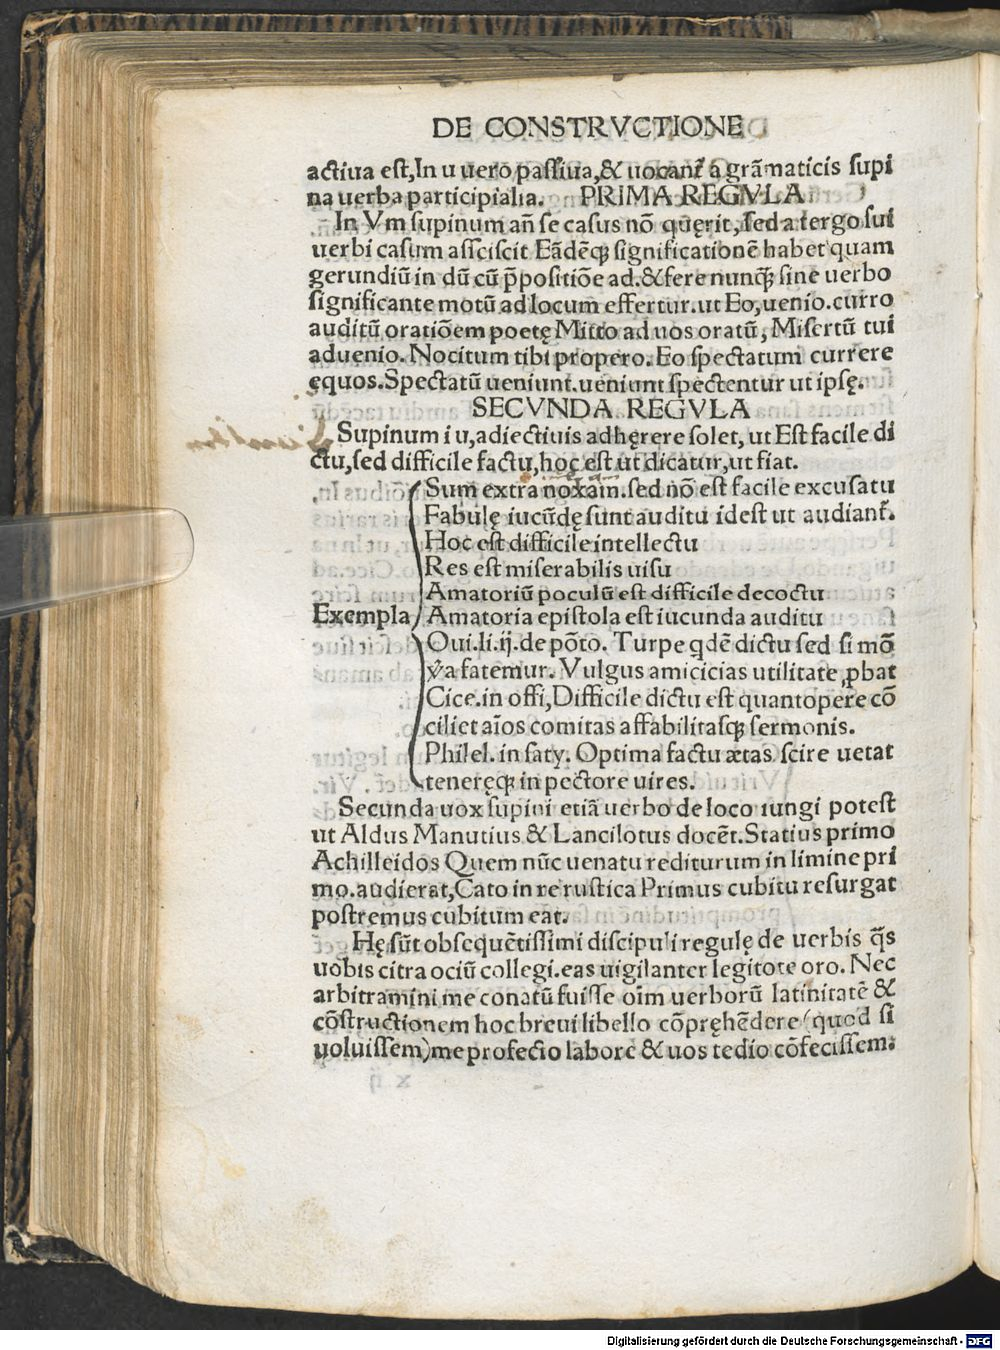 DE CONSTRVCTIONE
actiua est, In u uero passiua, & uocant᷑ a grãmaticis supi
na uerba participialia. PRIMA REGVLA
In Vm supinum añ se casus nõ quęrit, sed a tergo sui
uerbi casum asciscit Eãdẽq; significationẽ habet quam
gerundiũ in dũ cũ p̃positiõe ad. & fere nunq̃; sine uerbo
significante motũ ad locum effertur. ut Eo, uenio. curro
auditũ oratiõem poetę Mitto ad uos oratũ, Misertũ tui
aduenio. Nocitum tibi propero. Eo spectatum currere
ęquos. Spectatũ ueniunt. ueniunt spectentur ut ipsę.
SECVNDA REGVLA
Supinum i u, adiectiuis adhęrere solet, ut Est facile di
ctu, sed difficile factu, hoc est ut dicatur, ut fiat.
Sum extra noxam. sed nõ est facile excusatu
Fabulę iucũdę sunt auditu idest ut audiant᷑.
Hoc est difficile intellectu
Res est miserabilis uisu
Amatoriũ poculũ est difficile decoctu
Exempla Amatoria epistola est iucunda auditu
Oui. li. ij. de põto. Turpe q̃dẽ dictu sed si mõ
ṽa fatemur. Vulgus amicicias utilitate ꝓbat
Cice. in offi, Difficile dictu est quantopere cõ
ciliet aĩos comitas affabilitasq; sermonis.
Philel. in saty. Optima factu ætas scire uetat
teneręq; in pectore uires.
Secunda uox supini etiã uerbo de loco iungi potest
ut Aldus Manutius & Lancilotus docẽt. Statius primo
Achilleidos Quem nũc uenatu rediturum in limine pri
mo. audierat, Cato in re rustica Primus cubitu resurgat
postremus cubitum eat.
Hę sũt obsequẽtissimi discipuli regulę de uerbis q̃s
uobis citra ociũ collegi. eas uigilanter legitote oro. Nec
arbitramini me conatũ fuisse oĩm uerborũ latinitatẽ &
cõstructionem hoc breui libello cõpręhẽdere (quod si
uoluissem) me profecto labore & uos tedio cõfecissem.
Digitalisierung gefördert durch die Deutsche Forschungsgemeinschaft - DFG